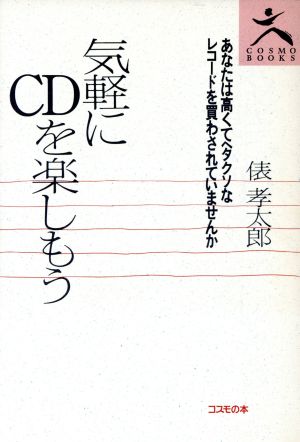 COSMO
BOOKS
あなたは高くてヘタクソな
レコードを買わされていませんか
俵 孝太郎
気軽に
CDを楽しもう
コスモの本